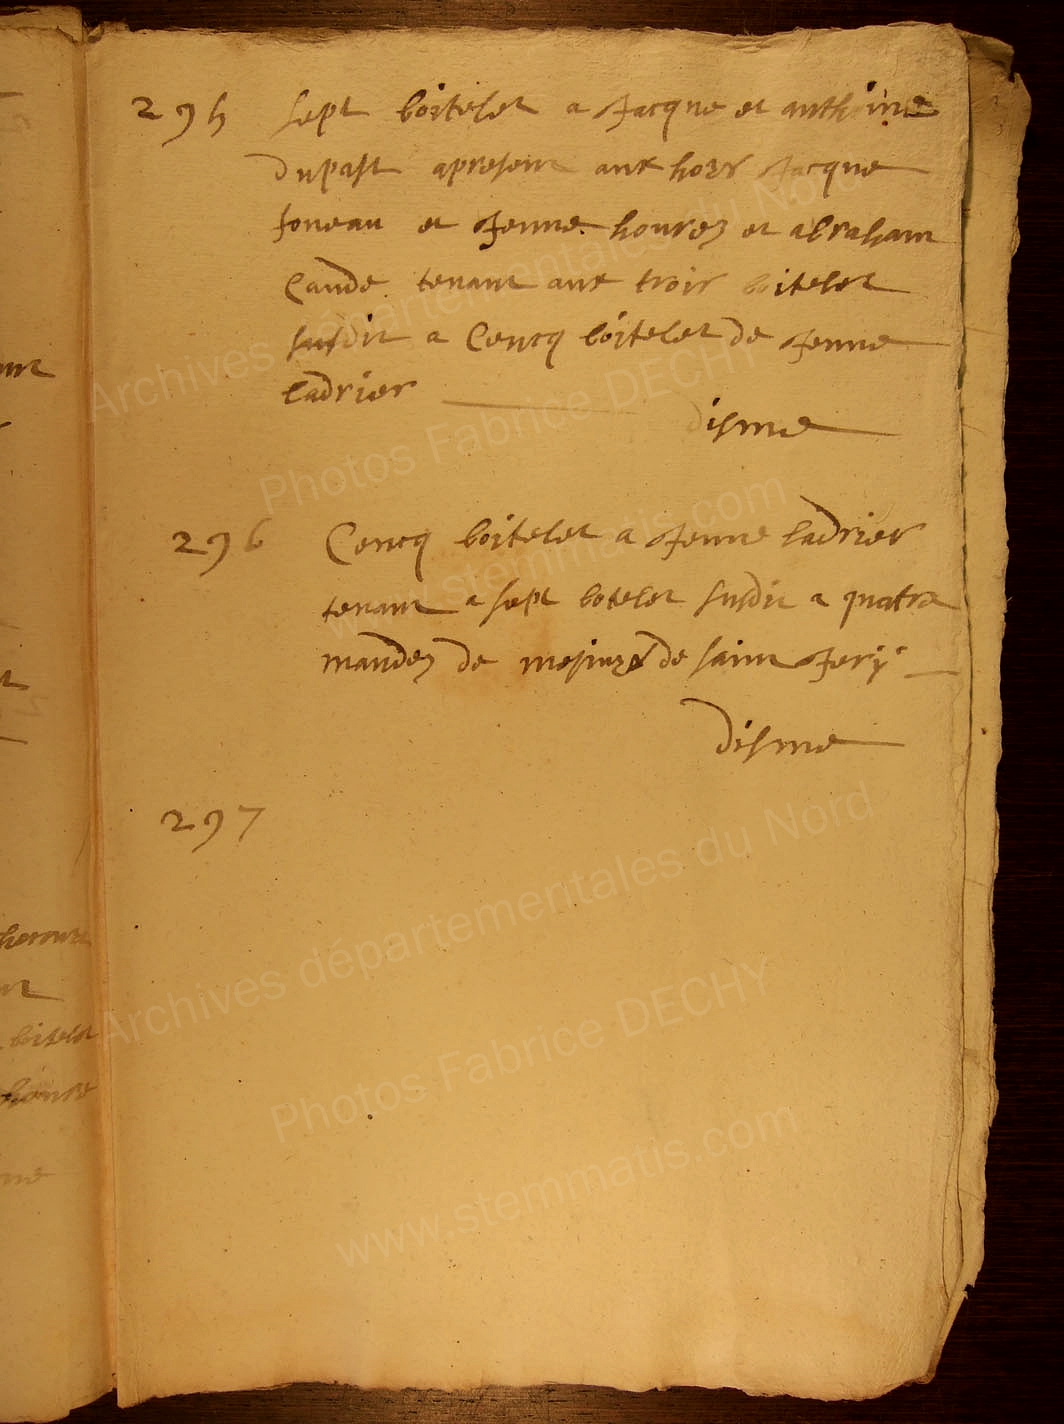 295 sept boitelet a Jacque et anthoine
Dupast apresent aux hoirs Jacque
foneau et Jenne hourez et abraham
Caude tenant aux trois boitelet
susdit a Cencq boitelet de Jenne
ladrier
disme
296 Cencq boitelet a Jenne ladrier
tenant a sept botelet susdit a quatre
mandez de de saint Jery
disme
297
boitelet
Archives départementales du Nord
Photos Fabrice DECHY
www.stemmatis.com
Archives départementales du Nord
Photos Fabrice DECHY
www.stemmatis.com